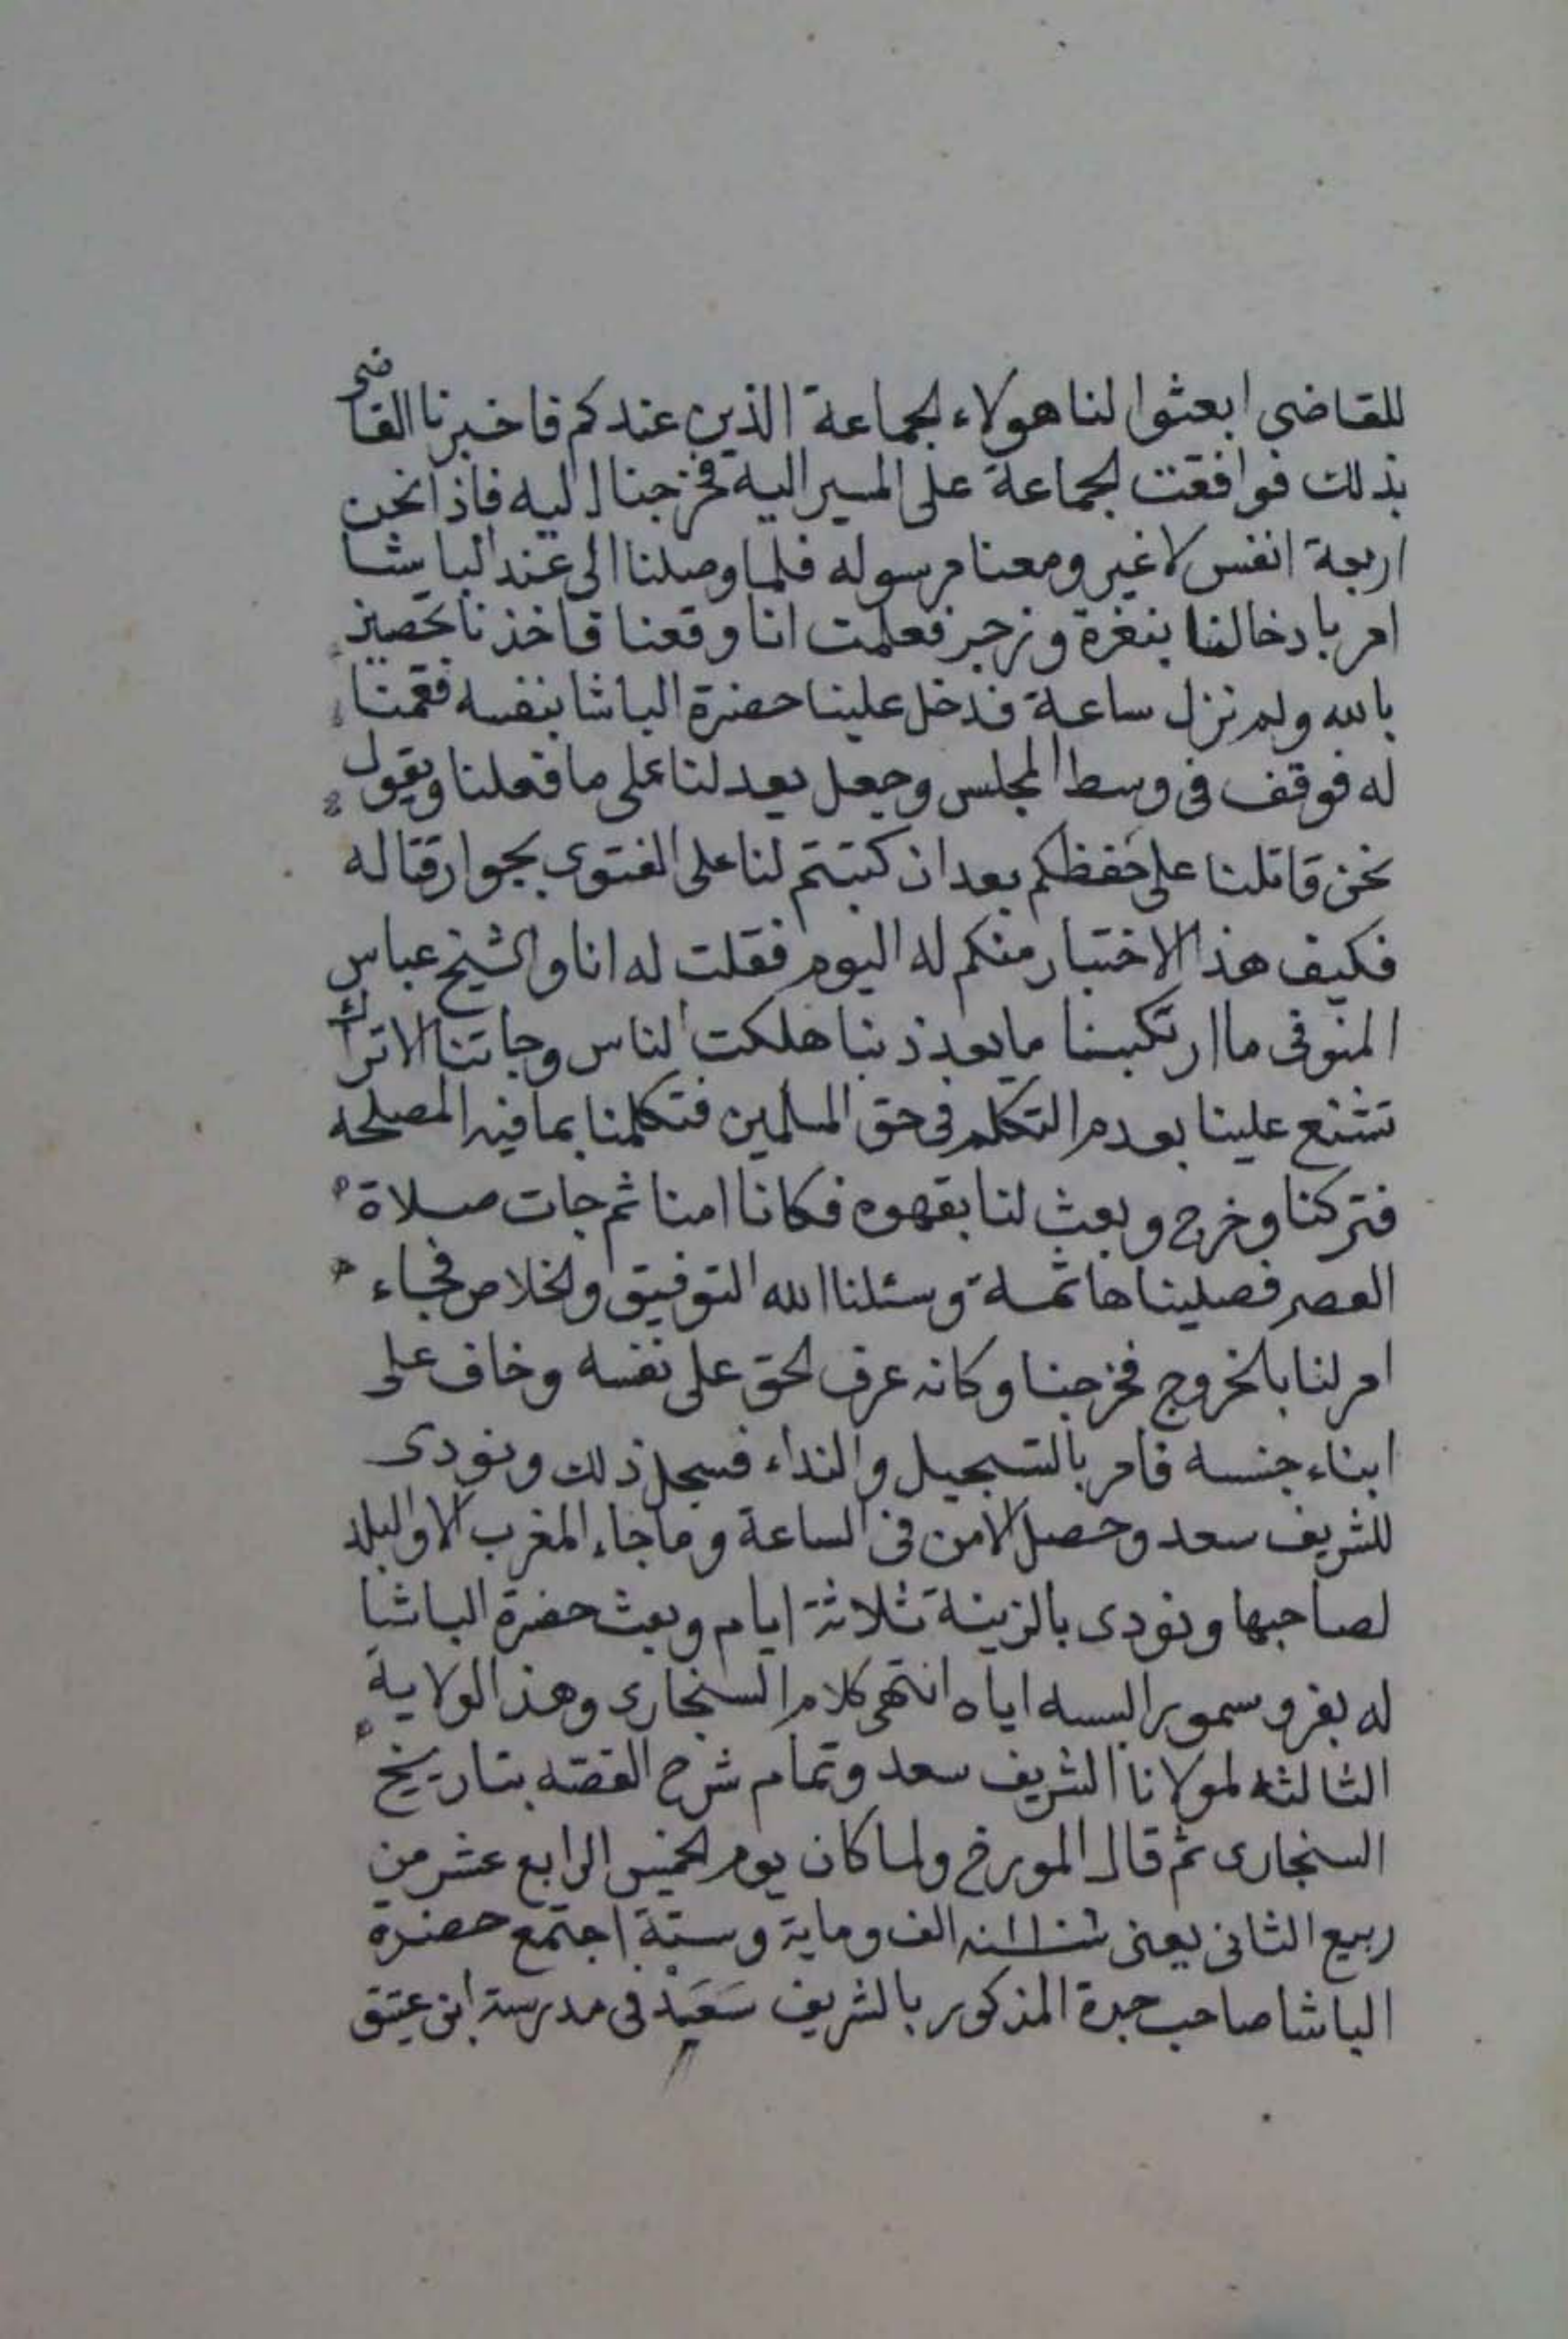 للقاضى ابعثوا لنا هولاء الجماعة الذين عندكم فاخبرنا القاضى
بذلك فوافقت الجماعة على المسير اليه فخرجنا اليه فاذا نحن
اربعة انفس لاغير ومعنا رسوله فلما وصلنا الى عند الباشا
امر بادخالنا بنغرة وزجر فعلمت انا وقعنا فاخذنا نحصن
بالله ولم نزل ساعة فدخل علينا حضرة الباشا بنفسه فقمنا
له فوقف فى وسط المجلس وجعل يعد لنا على ما فعلنا ويقول
نحن قاتلنا على حفظكم بعد ان كتبتم لنا على الفتوى بجواز قتاله
فكيف هذا الاختيار منكم له اليوم فقلت له انا والشيخ عباس
المنوفى ما ارتكبنا ما يعد ذنبا هلكت الناس وجاتنا الاتراك
تشنع علينا بعدم التكلم فى حق المسلمين فتكلمنا بما فيه المصلحه
فتركنا وخرج وبعث لنا بقهوه فكانا امنا ثم جات صلاة
العصر فصليناها ثمة وسئلنا الله التوفيق والخلاص فجاء
امر لنا بالخروج فخرجنا وكانه عرف الحق على نفسه وخاف على
ابناء جنسه فامر بالتسجيل والنداء فسجل ذلك ونودى
للشريف سعد وحصل الامن فى الساعة وما جاء المغرب الا والبلد
لصاحبها ونودى بالزينة ثلاثة ايام وبعث حضرة الباشا
له بفرو سمور البسه اياه انتهى كلام السنجارى وهذا الولاية
الثالثه لمولانا الشريف سعد وتمام شرح القصه بتاريخ
السنجارى ثم قال المورخ ولما كان يوم الخميس الرابع عشر من
ربيع الثانى يعنى سنه الف وماية وستة اجتمع حضرة
الباشا صاحب جدة المذكور بالشريف سعيد فى مدرسة ابن عتيق